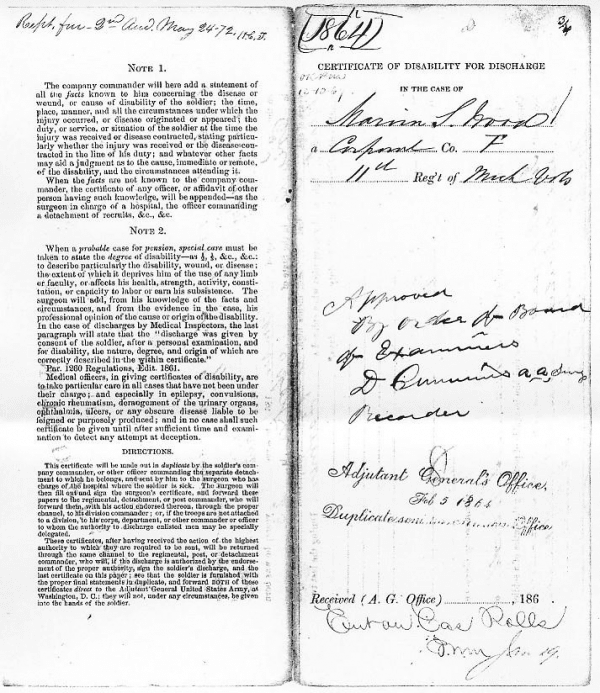 Rept. fur - 2nd Aud. May 24-72.
NOTE 1.
The company commander will here add a statement of
all the facts known to him concerning the disease or
wound, or cause of disability of the soldier; the time,
place, manner, and all the circumstances under which the
injury occurred, or disease originated or appeared; the
duty, or service, or situation of the soldier at the time the
injury was received or disease contracted, stating particu-
larly whether the injury was received or the disease con-
tracted in the line of his duty; and whatever other facts
may aid a judgment as to the cause, immediate or remote,
of the disability, and the circumstances attending it.
When the facts are not known to the company com-
mander, the certificate of any officer, or affidavit of other
person having such knowledge, will be appended—as the
surgeon in charge of a hospital, the officer commanding
a detachment of recruits, &c., &c.
NOTE 2.
When a probable case for pension, special care must be
taken to state the degree of disability—as ½, ⅓, &c., &c.:
to describe particularly the disability, wound, or disease;
the extent of which it deprives him of the use of any limb
or faculty, or affects his health, strength, activity, consti-
tution, or capacity to labor or earn his subsistence. The
surgeon will add, from his knowledge of the facts and
circumstances, and from the evidence in the case, his
professional opinion of the cause or origin of the disability.
In the case of discharges by Medical Inspectors, the last
paragraph will state that the "discharge was given by
consent of the soldier, after a personal examination, and
for disability, the nature, degree, and origin of which are
correctly described in the within certificate."
Par. 1260 Regulations, Edit. 1861.
Medical officers, in giving certificates of disability, are
to take particular care in all cases that have not been under
their charge; and especially in epilepsy, convulsions,
chronic rheumatism, derangement of the urinary organs,
ophthalmia, ulcers, or any obscure disease liable to be
feigned or purposely produced; and in no case shall such
certificate be given until after sufficient time and exami-
nation to detect any attempt at deception.
DIRECTIONS.
This certificate will be made out in duplicate by the soldier's com-
pany commander, or other officer commanding the separate detach-
ment to which he belongs, and sent by him to the surgeon who has
charge of the hospital where the soldier is sick. The surgeon will
then fill out and sign the surgeon's certificate, and forward these
papers to the regimental, detachment, or post commander, who will
forward them, with his action endorsed thereon, through the proper
channel, to his division commander; or, if the troops are not attached
to a division, to his corps, department, or other commander or officer
to whom the authority to discharge enlisted men may be specially
delegated.
These certificates, after having received the action of the highest
authority to which they are required to be sent, will be returned
through the same channel to the regimental, post, or detachment
commander, who will, if the discharge is authorized by the endorse-
ment of the proper authority, sign the soldier's discharge, and the
last certificate on this paper; see that the soldier is furnished with
the proper final statements in duplicate, and forward BOTH of these
certificates direct to the Adjutant General United States Army, at
Washington, D. C.; they will not, under any circumstances, be given
into the hands of the soldier.
1864
CERTIFICATE OF DISABILITY FOR DISCHARGE
IN THE CASE OF
Marvin S. Wood
a Corporal Co. F
11th Reg't of Mich Vols
Approved
By order of Board
of Examiners
D Cummins
Recorder
Adjutant General's Office,
Feb 5 186
Duplicate sent Office
Received (A. G. Office) , 186 .
Rolls